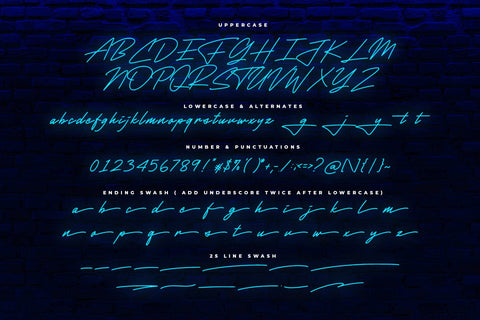 UPPERCASE
ABCDEFGHIJKLM
NOPQRSTUVWXYZ
LOWERCASE & ALTERNATES
abcdefghijklmnopqrstuvwxyz g j y t t
NUMBER & PUNCTUATIONS
0123456789!"#$%'()*+,-/:;<=>?@[\]{|}~
ENDING SWASH ( ADD UNDERSCORE TWICE AFTER LOWERCASE)
a b c d e f g h i j k l m
n o p q r s t u v w x y z
25 LINE SWASH